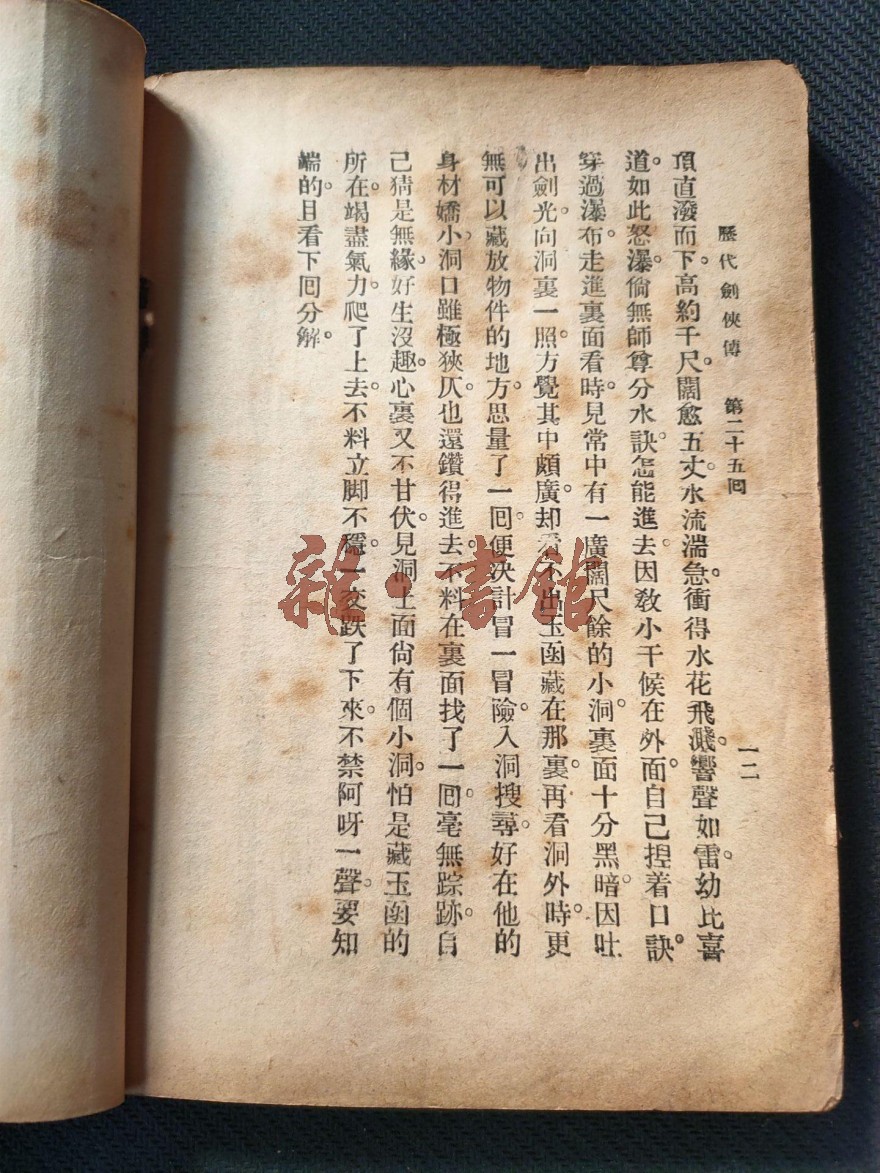 歷代劍俠傳　第二十五囘
一二
頂直潑而下。高約千尺。闊愈五丈。水流湍急。衝得水花飛濺。響聲如雷。幼比喜
道。如此怒瀑。倘無師尊分水訣。怎能進去。因教小干候在外面。自己揑着口訣。
穿過瀑布。走進裏面看時。見當中有一廣闊尺餘的小洞。裏面十分黑暗。因吐
出劍光。向洞裏一照。方覺其中頗廣。却看不出玉函藏在那裏。再看洞外時。更
無可以藏放物件的地方。思量了一囘。便決計冒一冒險。入洞搜尋。好在他的
身材嬌小。洞口雖極狹仄。也還鑽得進去。不料在裏面找了一囘。毫無踪跡。自
己猜是無緣。好生沒趣。心裏又不甘伏。見洞上面尙有個小洞。怕是藏玉函的
所在。竭盡氣力。爬了上去。不料立脚不穩。一交跌了下來。不禁阿呀一聲。要知
端的。且看下囘分解。
雜·書館